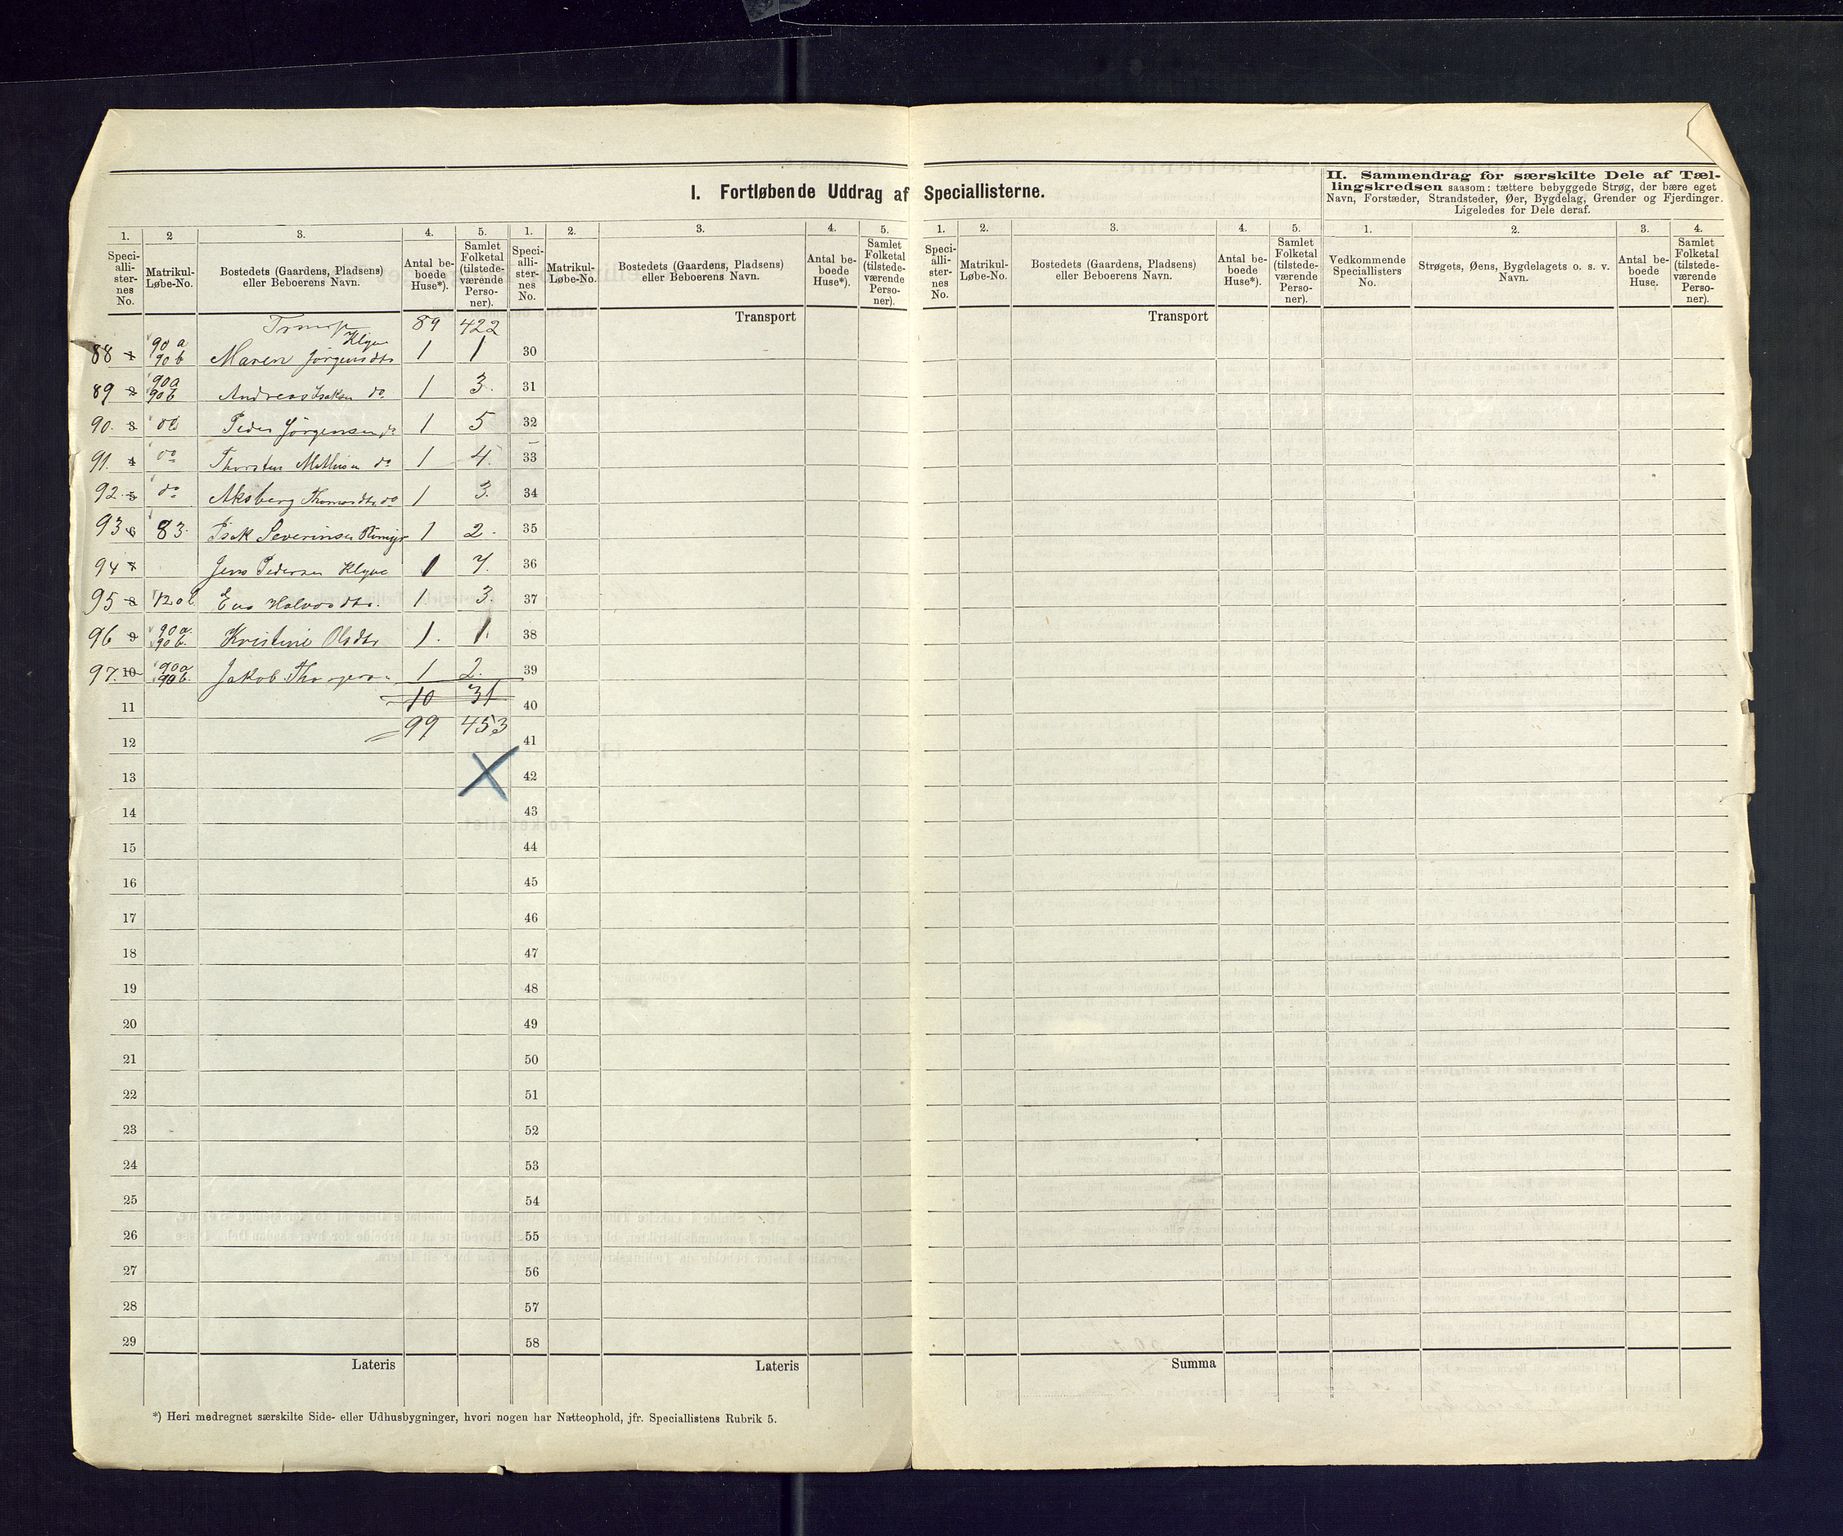 I. Fortløbende Uddrag af Speciallisterne.
II. Sammendrag for særskilte Dele af Tællingskredsen saasom: tættere bebyggede Strøg, der bære eget
Navn, Forstæder, Strandsteder, Øer, Bygdelag, Grender og Fjerdinger.
Ligeledes for Dele deraf.
1. 2 3. 4. 5. 1. 2. 3. 4. 5. 1. 2. 3. 4. 5. 1. 2. 3. 4.
Speciallisternes No. Matrikul-Løbe-No. Bostedets (Gaardens, Pladsens) eller Beboerens Navn. Antal beboede Huse*). Samlet Folketal (tilstedeværende Personer).
Speciallisternes No. Matrikul-Løbe-No. Bostedets (Gaardens, Pladsens) eller Beboerens Navn. Antal beboede Huse*). Samlet Folketal (tilstedeværende Personer).
Speciallisternes No. Matrikul-Løbe-No. Bostedets (Gaardens, Pladsens) eller Beboerens Navn. Antal beboede Huse*). Samlet Folketal (tilstedeværende Personer).
Vedkommende Speciallisters No. Strøgets, Øens, Bygdelagets o. s. v. Navn. Antal beboede Huse. Samlet Folketal (tilstedeværende Personer).
Transp 89 422 Transport Transport
88 1 90 a 90 b Maren Jørgensdtr Klyve 1 1 30
89 2 90a 90b Andreas Isaksen do 1 3. 31
90. 3 do Peder Jørgensen do 1 5 32
91. 4 do Thorsten Mathisen do 1 4. 33
92. 5 do Aksberg Thomasdtr do 1 3. 34
93 6 83. Isak Severinsen 1 2. 35
94 7 Jens Pedersen Klyve 1 7. 36
95 8 Eva Halvorsdtr. 1 3. 37
96 9 90a. 90b. Kristine Olsdtr 1. 1. 38
97. 10 90a 90b. Jakob 1 2. 39
11 10 31 40
12 99 453 41
13 42
14 43
15 44
16 45
17 46
18 47
19 48
20 49
21 50
22 51
23 52
24 53
25 54
26 55
27 56
28 57
29 58
Lateris Lateris Summa
*) Heri medregnet særskilte Side- eller Udhusbygninger, hvori nogen har Natteophold, jfr. Speciallistens Rubrik 5.